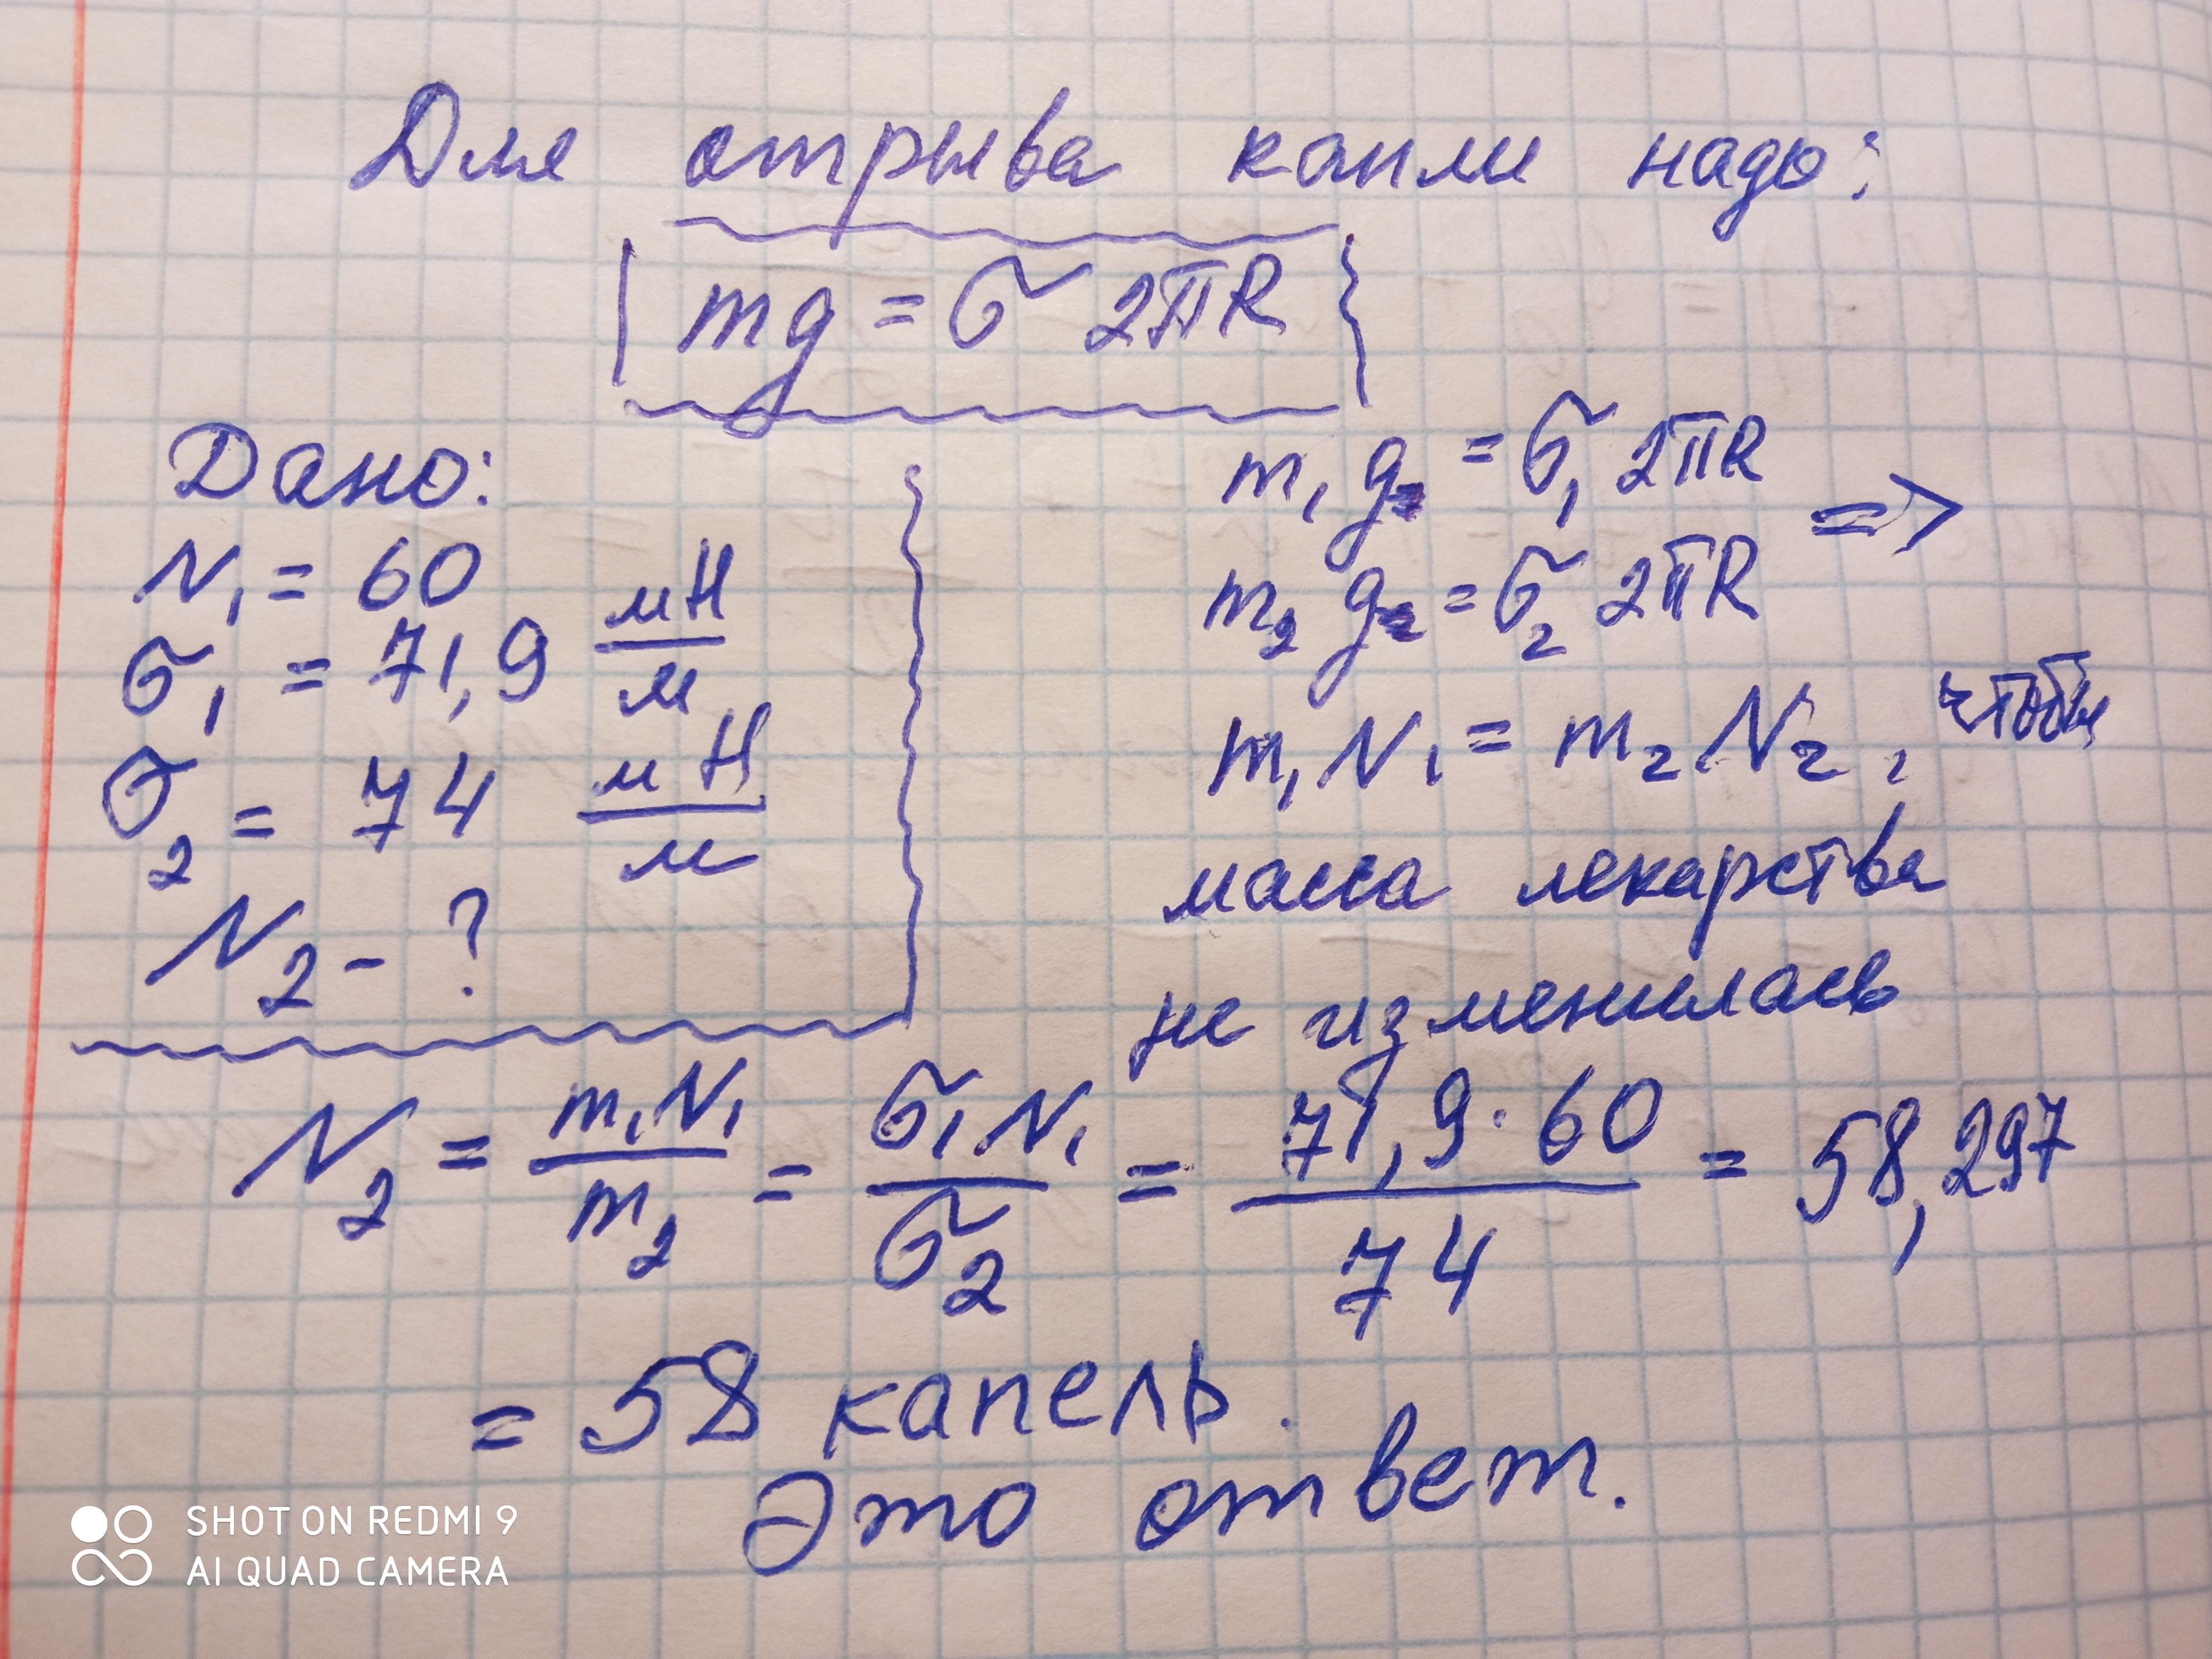 Для отрыва капли надо:
mg = σ 2πR
Дано:
N₁ = 60
σ₁ = 71,9 мН/м
σ₂ = 74 мН/м
N₂ - ?
m₁ g = σ₁ 2πR
m₂ g = σ₂ 2πR =>
m₁ N₁ = m₂ N₂, чтобы
масса лекарства
не изменилась
N₂ = m₁N₁/m₂ = σ₁N₁/σ₂ = 71,9·60/74 = 58,297
= 58 капель.
Это ответ.
SHOT ON REDMI 9
AI QUAD CAMERA